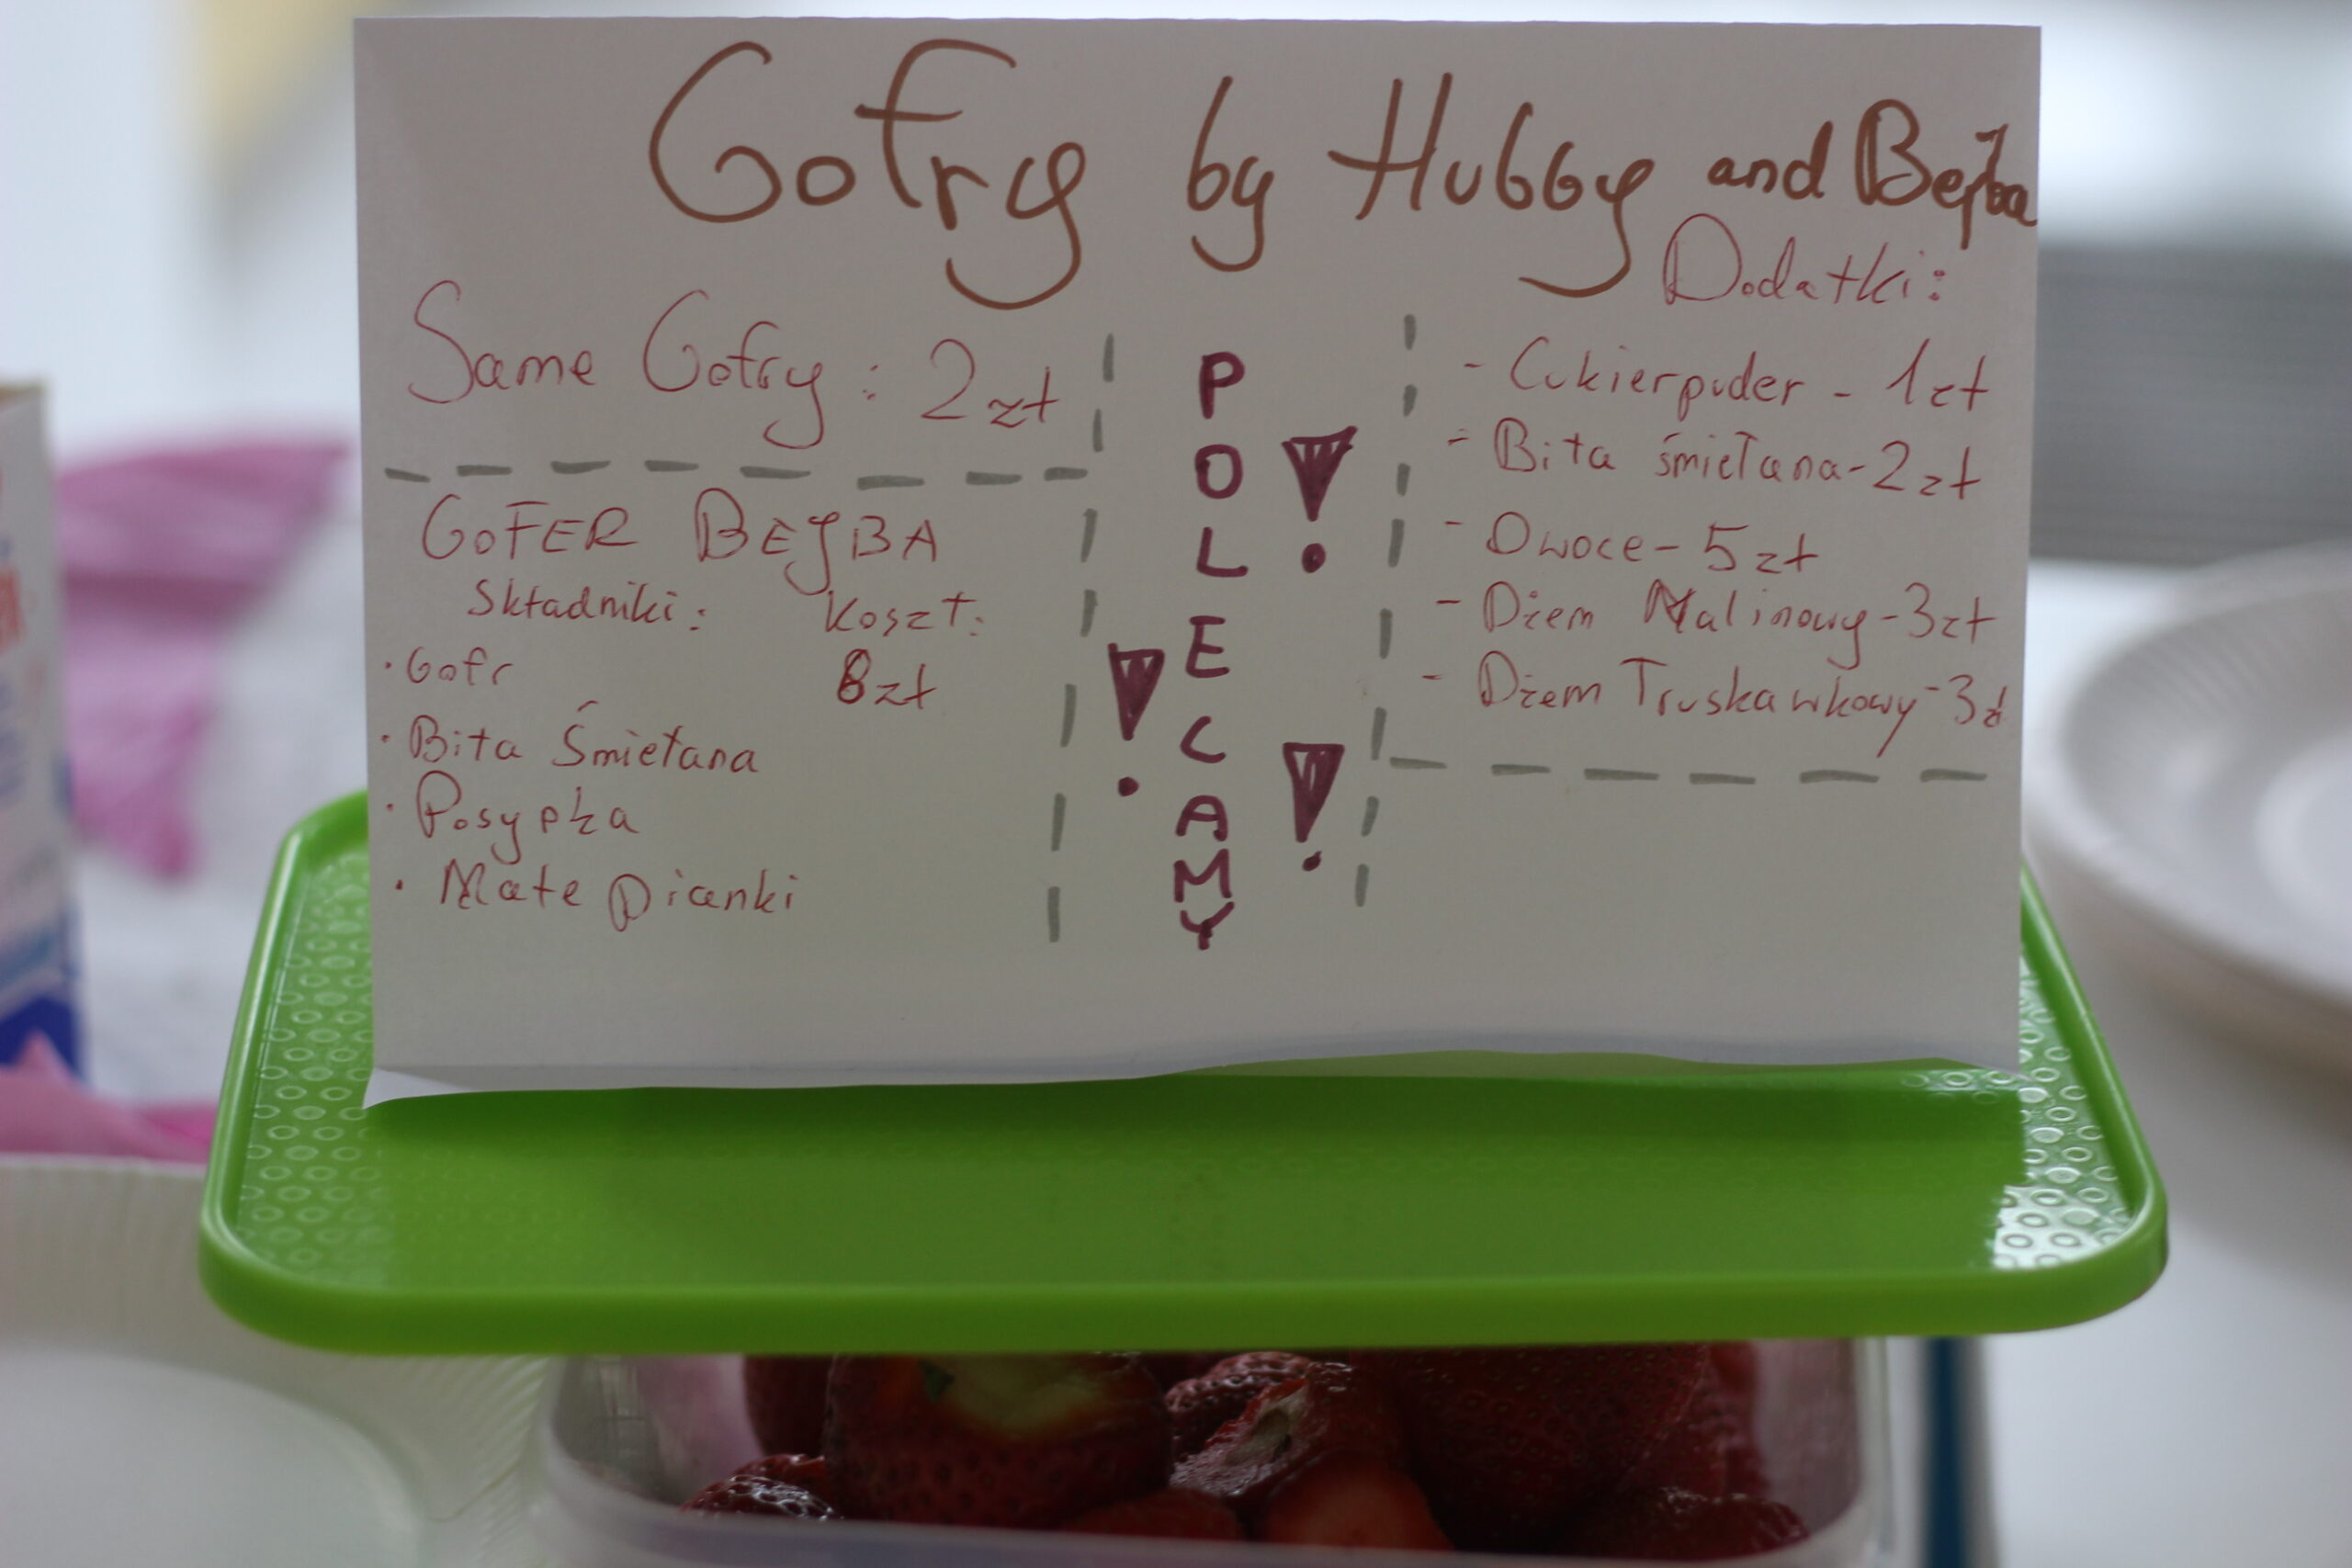 Gofry by Hubby and Bejba
Same Gofry: 2zł
GOFER BEJBA
Składniki: Koszt:
• Gofr 8zł
• Bita Śmietana
• Posypka
• Małe pianki
POLECAMY !!!
Dodatki:
- Cukierpuder - 1zł
- Bita śmietana - 2zł
- Owoce - 5zł
- Dżem Malinowy - 3zł
- Dżem Truskawkowy - 3zł